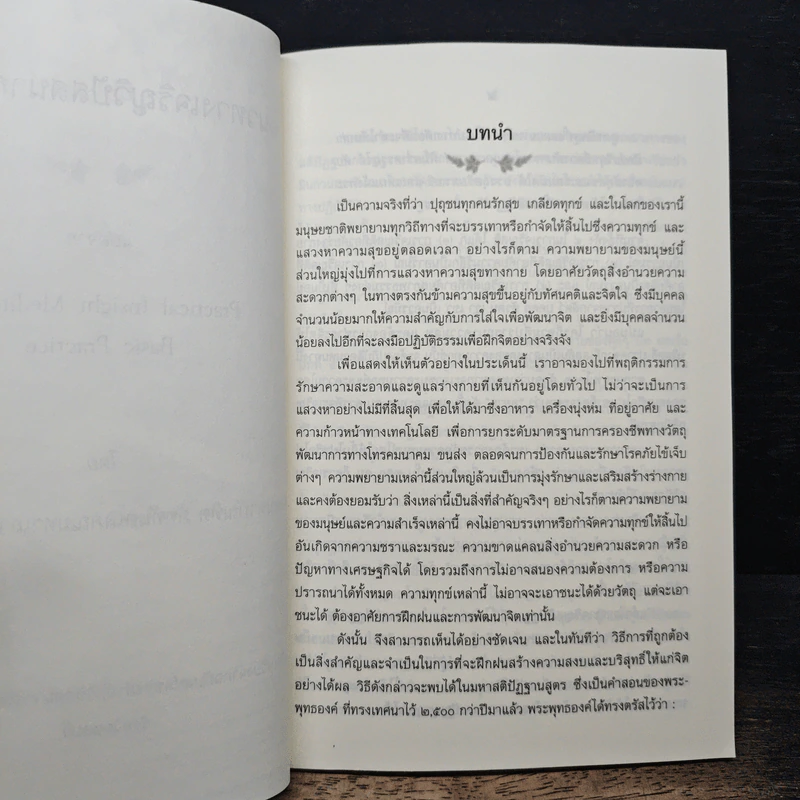 บทนำ
เป็นความจริงที่ว่า ปุถุชนทุกคนรักสุข เกลียดทุกข์ และในโลกของเรานี้
มนุษยชาติพยายามทุกวิถีทางที่จะบรรเทาหรือกำจัดให้สิ้นไปซึ่งความทุกข์ และ
แสวงหาความสุขอยู่ตลอดเวลา อย่างไรก็ตาม ความพยายามของมนุษย์นี้
ส่วนใหญ่มุ่งไปที่การแสวงหาความสุขทางกาย โดยอาศัยวัตถุสิ่งอำนวยความ
สะดวกต่างๆ ในทางตรงกันข้ามความสุขขึ้นอยู่กับทัศนคติและจิตใจ ซึ่งมีบุคคล
จำนวนน้อยมากให้ความสำคัญกับการใส่ใจเพื่อพัฒนาจิต และยิ่งมีบุคคลจำนวน
น้อยลงไปอีกที่จะลงมือปฏิบัติธรรมเพื่อฝึกจิตอย่างจริงจัง
เพื่อแสดงให้เห็นตัวอย่างในประเด็นนี้ เราอาจมองไปที่พฤติกรรมการ
รักษาความสะอาดและดูแลร่างกายที่เห็นกันอยู่โดยทั่วไป ไม่ว่าจะเป็นการ
แสวงหาอย่างไม่มีที่สิ้นสุด เพื่อให้ได้มาซึ่งอาหาร เครื่องนุ่งห่ม ที่อยู่อาศัย และ
ความก้าวหน้าทางเทคโนโลยี เพื่อการยกระดับมาตรฐานการครองชีพทางวัตถุ
พัฒนาการทางโทรคมนาคม ขนส่ง ตลอดจนการป้องกันและรักษาโรคภัยไข้เจ็บ
ต่างๆ ความพยายามเหล่านี้ส่วนใหญ่ล้วนเป็นการมุ่งรักษาและเสริมสร้างร่างกาย
และคงต้องยอมรับว่า สิ่งเหล่านี้เป็นสิ่งที่สำคัญจริงๆ อย่างไรก็ตามความพยายาม
ของมนุษย์และความสำเร็จเหล่านี้ คงไม่อาจบรรเทาหรือกำจัดความทุกข์ให้สิ้นไป
อันเกิดจากความชราและมรณะ ความขาดแคลนสิ่งอำนวยความสะดวก หรือ
ปัญหาทางเศรษฐกิจได้ โดยรวมถึงการไม่อาจสนองความต้องการ หรือความ
ปรารถนาได้ทั้งหมด ความทุกข์เหล่านี้ ไม่อาจจะเอาชนะได้ด้วยวัตถุ แต่จะเอา
ชนะได้ ต้องอาศัยการฝึกฝนและการพัฒนาจิตเท่านั้น
ดังนั้น จึงสามารถเห็นได้อย่างชัดเจน และในทันทีว่า วิธีการที่ถูกต้อง
เป็นสิ่งสำคัญและจำเป็นในการที่จะฝึกฝนสร้างความสงบและบริสุทธิ์ให้แก่จิต
อย่างได้ผล วิธีดังกล่าวจะพบได้ในมหาสติปัฏฐานสูตร ซึ่งเป็นคำสอนของพระ-
พุทธองค์ ที่ทรงเทศนาไว้ ๒,๕๐๐ กว่าปีมาแล้ว พระพุทธองค์ได้ทรงตรัสไว้ว่า :